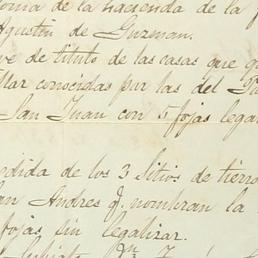 de la hacienda de la
Agustin de Guzman.
de titulo de las casas que
Mar conocidas por las del
San Juan con 5 fojas
de los 3 Sitios de
Andres q. nombran la
fojas sin legalizar.